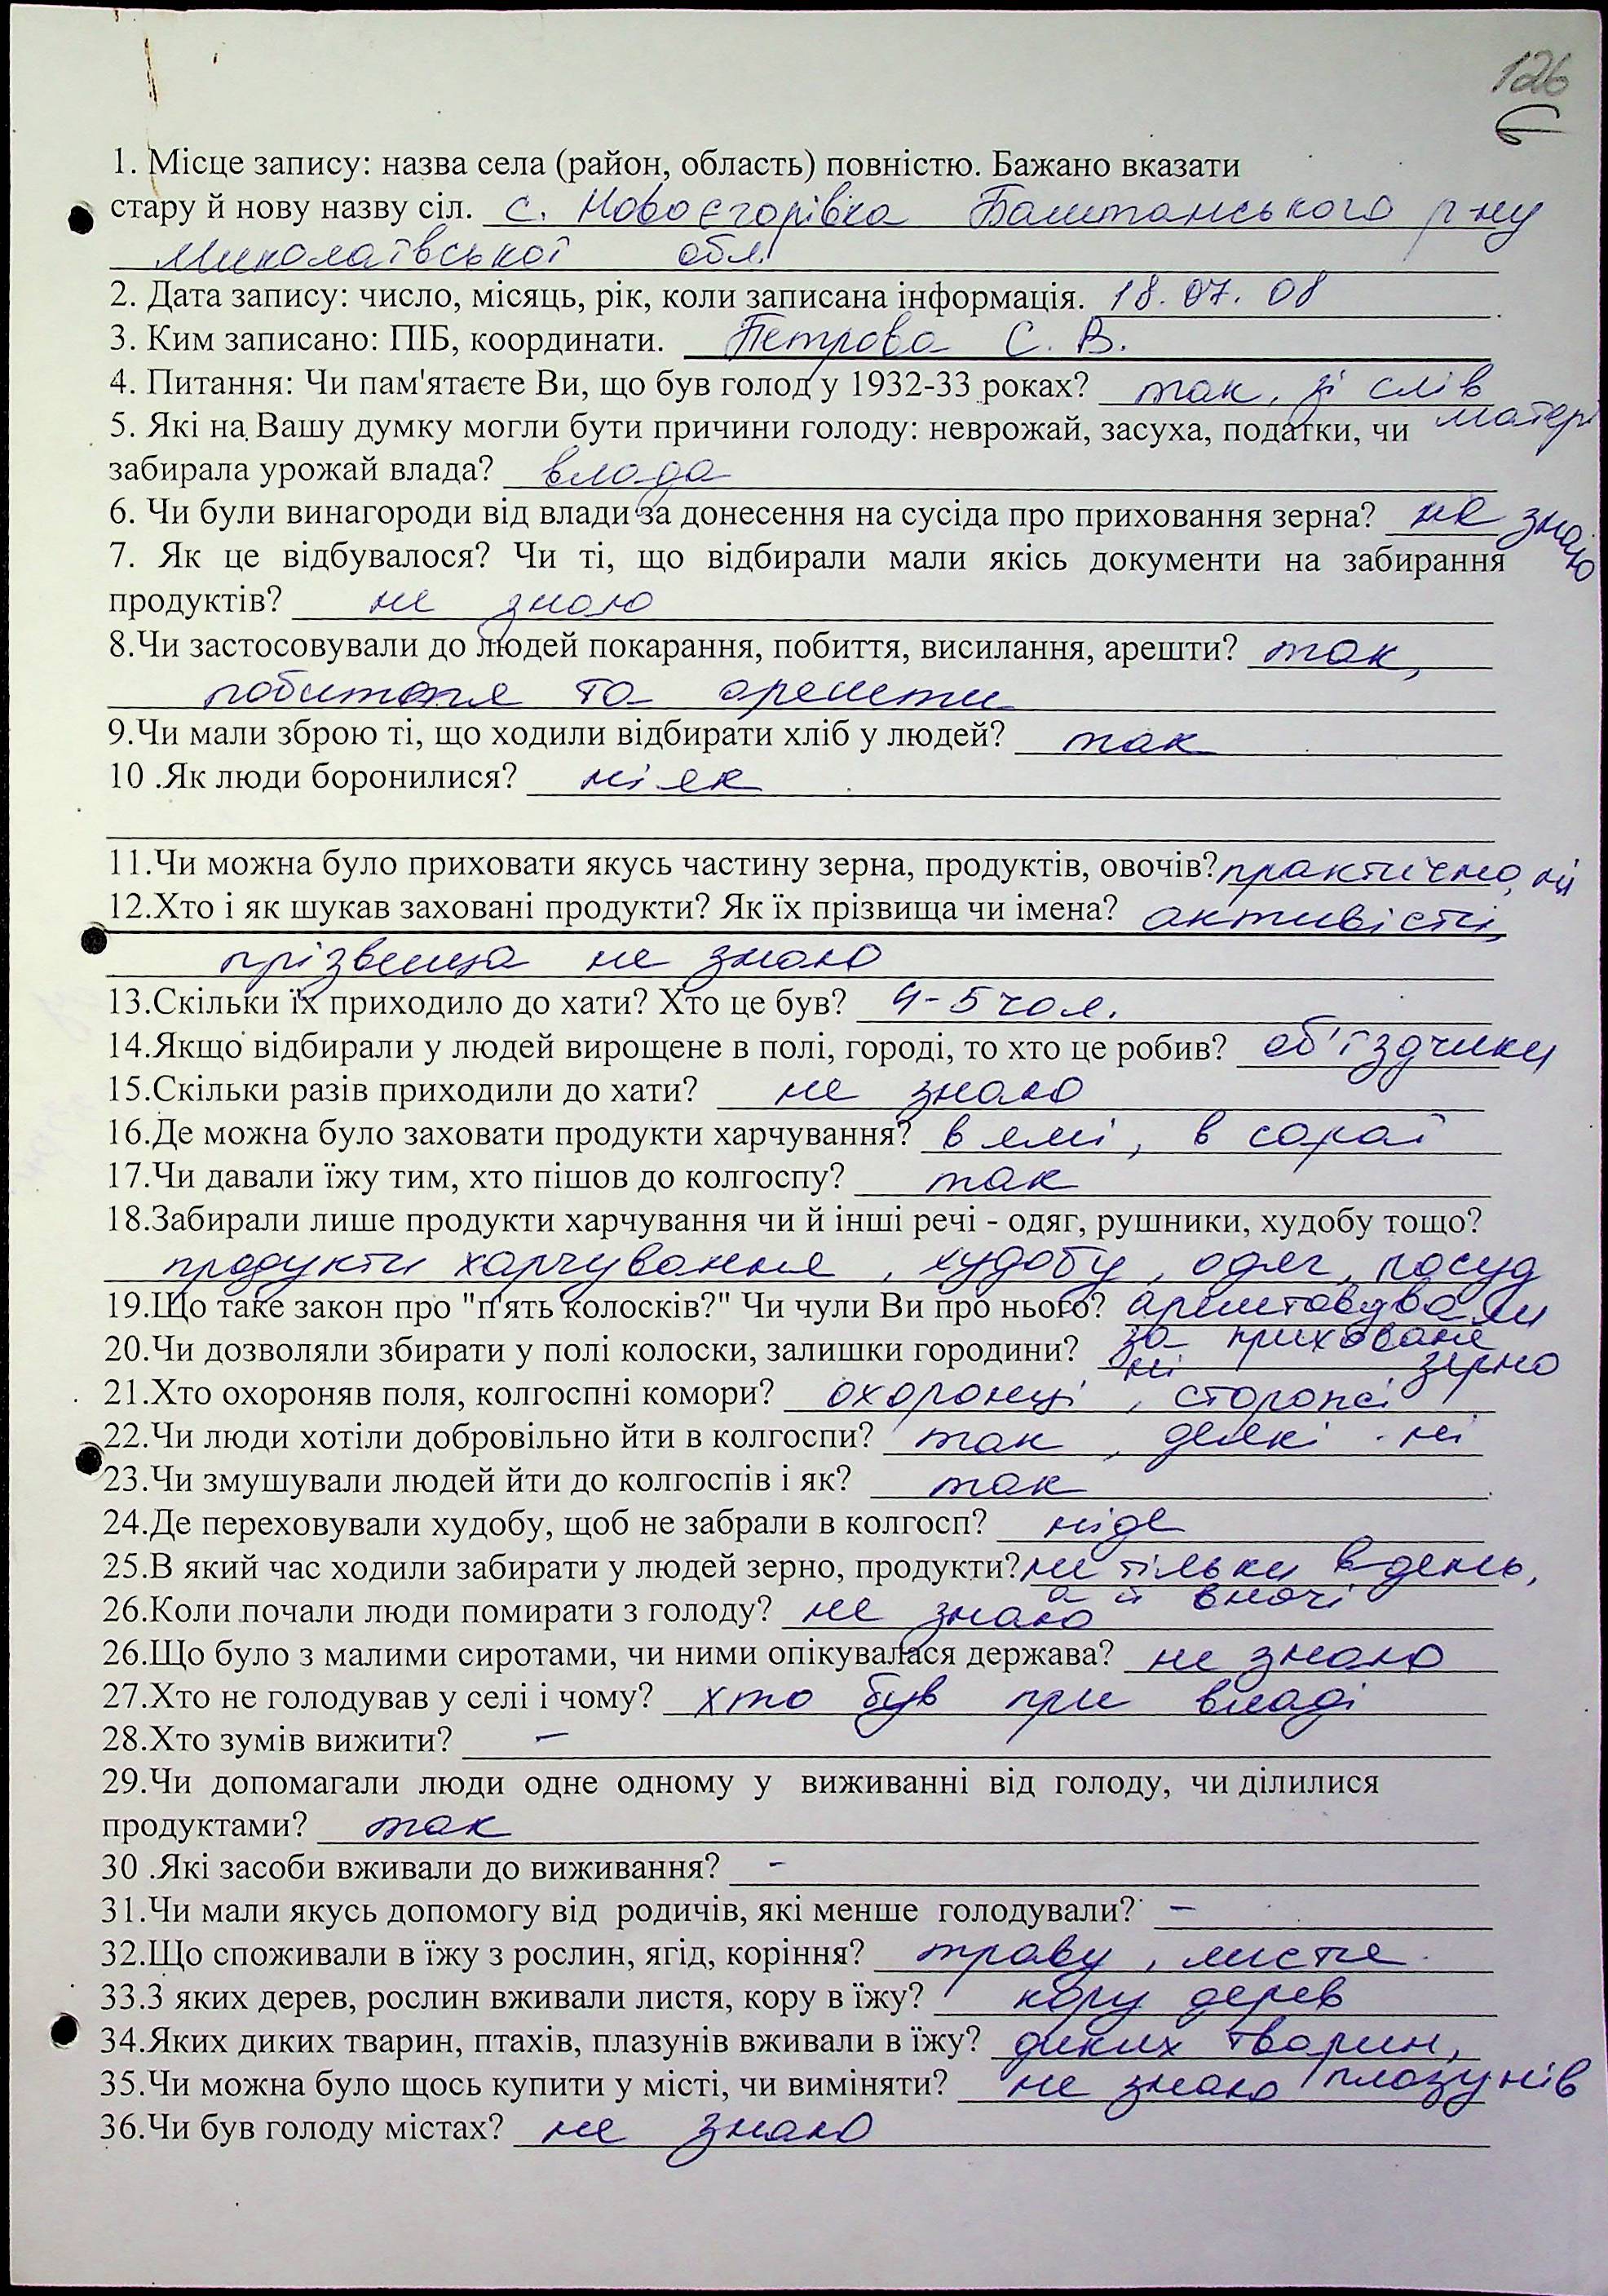 126
1. Місце запису: назва села (район, область) повністю. Бажано вказати
стару й нову назву сіл. с. Новоєгорівка Баштанського р-ну
Миколаївської обл.
2. Дата запису: число, місяць, рік, коли записана інформація. 18.07.08
3. Ким записано: ПІБ, координати. Петрова С. В.
4. Питання: Чи пам'ятаєте Ви, що був голод у 1932-33 роках? так, зі слів
матері
5. Які на Вашу думку могли бути причини голоду: неврожай, засуха, податки, чи
забирала урожай влада? влада
6. Чи були винагороди від влади за донесення на сусіда про приховання зерна? не знаю
7. Як це відбувалося? Чи ті, що відбирали мали якісь документи на забирання
продуктів? не знаю
8.Чи застосовували до людей покарання, побиття, висилання, арешти? так,
побиття та арешти
9.Чи мали зброю ті, що ходили відбирати хліб у людей? так
10 .Як люди боронилися? ніяк
11.Чи можна було приховати якусь частину зерна, продуктів, овочів? практично ні
12.Хто і як шукав заховані продукти? Як їх прізвища чи імена? активісти,
прізвища не знаю
13.Скільки їх приходило до хати? Хто це був? 4-5 чол.
14.Якщо відбирали у людей вирощене в полі, городі, то хто це робив? об'їздчики
15.Скільки разів приходили до хати? не знаю
16.Де можна було заховати продукти харчування? в ямі, в сараї
17.Чи давали їжу тим, хто пішов до колгоспу? так
18.Забирали лише продукти харчування чи й інші речі - одяг, рушники, худобу тощо?
продукти харчування, худобу, одяг, посуд
19.Що таке закон про "п'ять колосків?" Чи чули Ви про нього? арештовували
за приховане зерно
20.Чи дозволяли збирати у полі колоски, залишки городини? ні
21.Хто охороняв поля, колгоспні комори? охоронці, сторожі
22.Чи люди хотіли добровільно йти в колгоспи? так, деякі - ні
23.Чи змушували людей йти до колгоспів і як? так
24.Де переховували худобу, щоб не забрали в колгосп? ніде
25.В який час ходили забирати у людей зерно, продукти? не тільки вдень,
а й вночі
26.Коли почали люди помирати з голоду? не знаю
26.Що було з малими сиротами, чи ними опікувалася держава? не знаю
27.Хто не голодував у селі і чому? хто був при владі
28.Хто зумів вижити? -
29.Чи допомагали люди одне одному у виживанні від голоду, чи ділилися
продуктами? так
30 .Які засоби вживали до виживання? -
31.Чи мали якусь допомогу від родичів, які менше голодували? -
32.Що споживали в їжу з рослин, ягід, коріння? траву, листя
33.З яких дерев, рослин вживали листя, кору в їжу? кору дерев
34.Яких диких тварин, птахів, плазунів вживали в їжу? диких тварин,
плазунів
35.Чи можна було щось купити у місті, чи виміняти? не знаю
36.Чи був голоду містах? не знаю